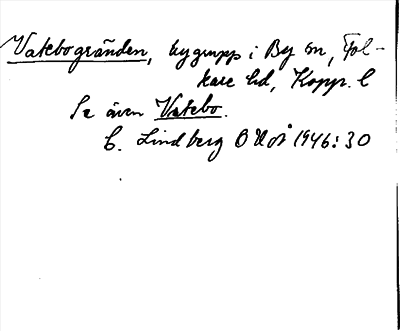 Vatebogränden, bygrupp i By sn, Fol-
kare hd, Kopp. l
Se även Vatebo.
C. Lindberg OUoÅ 1946: 30